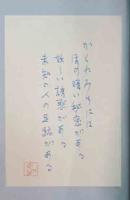 かくれみちには
落の暗い秘密がある
妖しい誘惑がある
未知の人の足跡がある